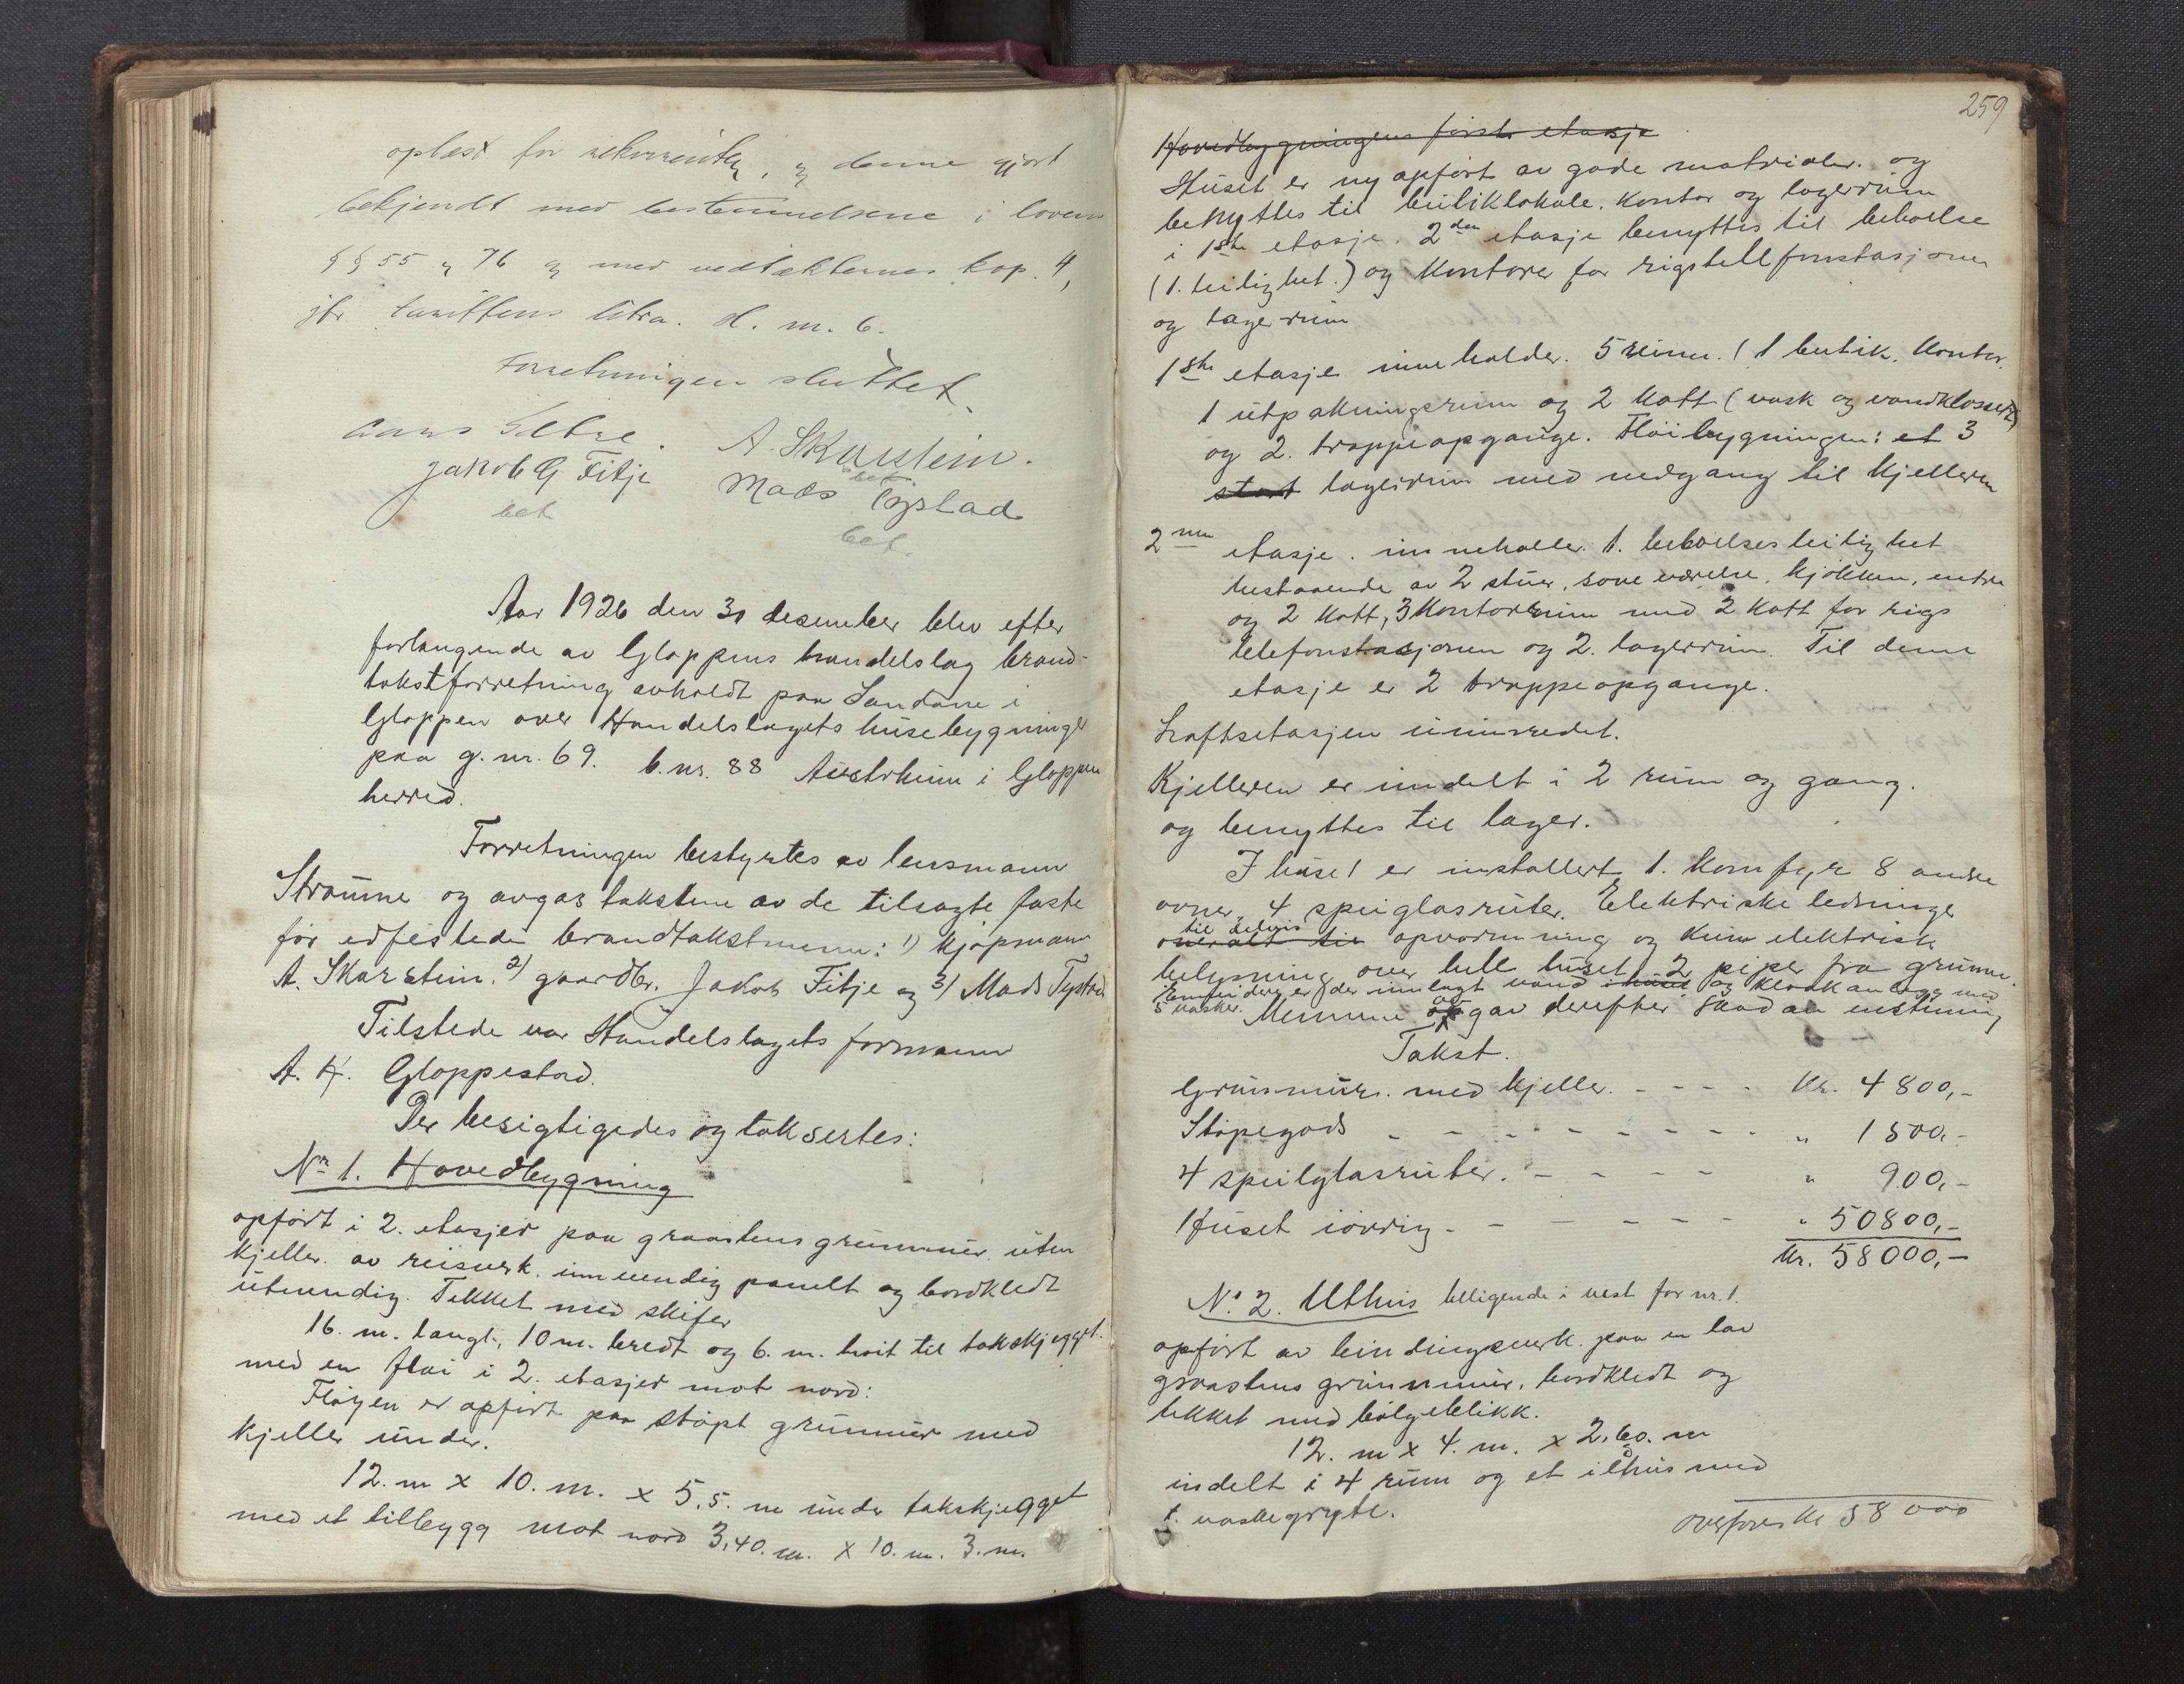 oplæst for rekvirenten, og denne gjort
bekjendt med bestemmelsene i lovens
§§ 55 og 76 og med vedtækternes kap. 4,
jfr. tariffens litra. H. m. 6.
Forretningen sluttet.
Hans Sætre. A. Skarstein.
bet
Jakob G Fitje Mads Tystad
bet bet.
Aar 1926 den 30 desember blev efter
forlangende av Gloppens handelslag brand-
takstforretning avholdt paa Sandane i
Gloppen over Handelslagets husebygninger
paa g. nr. 69. b. nr. 88 Austrheim i Gloppen
herred.
Forretningen bestyrtes av lensmann
Straume og avgas taksten av de tilsagte faste
før edfestede brandtakstmenn: 1) kjøpmann
A. Skarstein. 2) gaardbr. Jakob Fitje og 3) Mads Tystad
Tilstede var Handelslagets formann
A. K. Gloppestad.
Der besigtigedes og taksertes:
Nr 1. Hovedbygning
opført i 2. etasjer paa graastens grunnmur. uten
kjeller. av reisverk. innvendig panelt og bordkledt
utvendig. Tekket med skifer
16. m. langt, 10 m. bredt og 6. m. høit til takskjegget.
med en fløi i 2. etasjer mot nord:
Fløyen er opført paa støpt grunnmur med
kjeller under.
12. m x 10. m. x 5,5. m under takskjegget
med et tilbygg mot nord 3,40. m. x 10. m. 3. m.
259
Hovedbygningens første etasje
Huset er ny opført av gode materialer. og
benyttes til butiklokale. kontor og lagerrum
i 1ste etasje. 2den etasje benyttes til beboelse
(1. leilighet.) og kontorer for rigstellefonstasjonen
og lagerrum
1ste etasje inneholder. 5 rum. (1 butik. kontor.
1 utpakningsrum og 2 kott (vask og vandklosset)
og 2. trappeopgange. Fløibygningen: et 3
stort lagerrum med nedgang til kjelleren
2nen etasje. inneholder. 1. beboelsesleilighet
bestaaende av 2 stuer, soveværelse, kjøkken, entre
og 2 kott, 3 kontorrum med 2 kott for rigs
telefonstasjonen og 2. lagerrum. Til denne
etasje er 2 trappeopgange.
Loftsetasjen uinnredet.
Kjelleren er inndelt i 2 rum og gang.
og benyttes til lager.
I huset er installert 1. komfyr 8 andre
ovner, 4 speiglasruter. Elektriske ledninger
til delvis
overalt til opvarmning og kun elektrisk
belysning over hele huset, 2 piper fra grunnen.
Emfeidere er der innlagt vand i huset og kloakanlegg med
5 vasker. Mennene av gav derefter saadan enstemmig
Takst.
Grunnmur. med kjeller. - - - - Kr. 4800,-
Støpegods - - - - - - - - - " 1500,-
4 speilglasruter. - - - - " 900,-
Huset iøvrig - - - - - - " 50800,-
Kr. 58000,-
No 2. Uthus beliggende i vest for nr. 1.
opført av bindingsverk. paa en lav
graastens grunnmur, bordkledt og
tekket med bølgeblikk.
12. m x 4. m. x 2,60. m
indelt i 4 rum og et ildhus med
1. vaskegryte.
Overføres kr 58 000